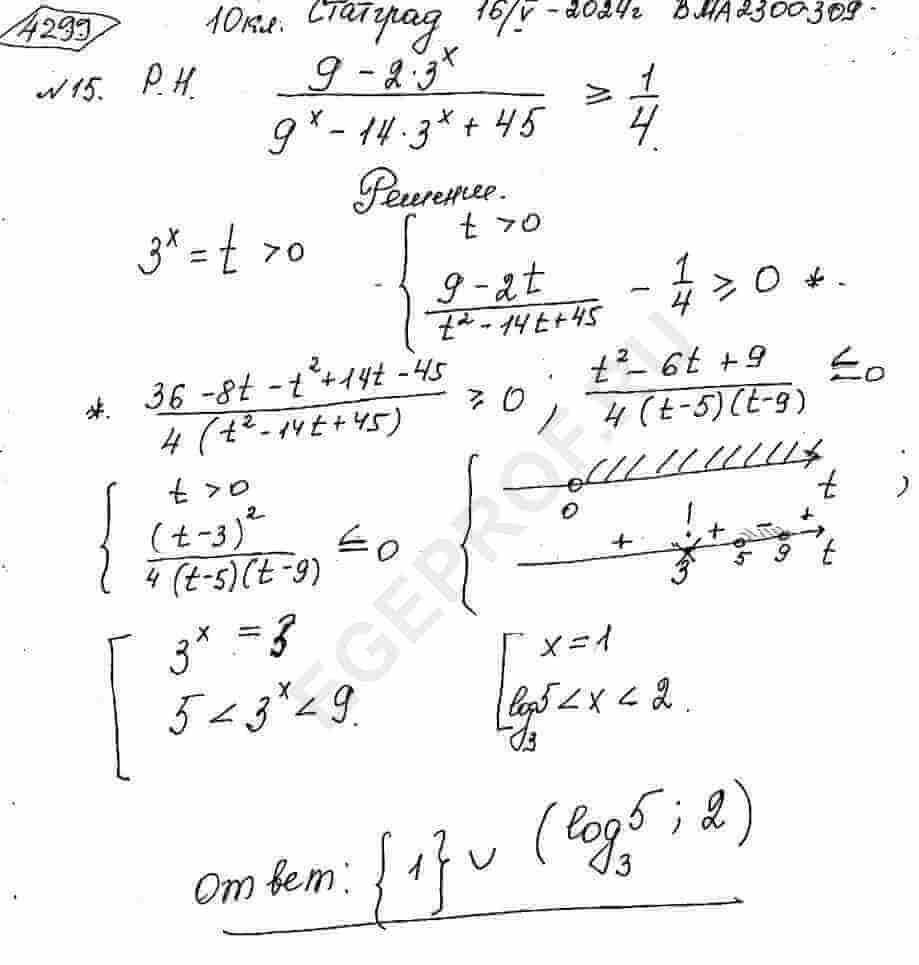 4299
10кл. Статград 16/V - 2024г ВМА2300309.
№15. Р.Н. (9 - 2·3^x)/(9^x - 14·3^x + 45) ≥ 1/4.
Решение.
3^x = t > 0 { t > 0
(9 - 2t)/(t² - 14t + 45) - 1/4 ≥ 0 *.
*. (36 - 8t - t² + 14t - 45)/(4(t² - 14t + 45)) ≥ 0 ; (t² - 6t + 9)/(4(t-5)(t-9)) ≤ 0
{ t > 0
(t-3)²/(4(t-5)(t-9)) ≤ 0
{ 0 t ;
+ 3 ! + 5 - 9 + t
[ 3^x = 3
5 < 3^x < 9.
[ x = 1
log₃5 < x < 2.
Ответ: {1} ∪ (log₃5 ; 2)
EGEPROF.RU